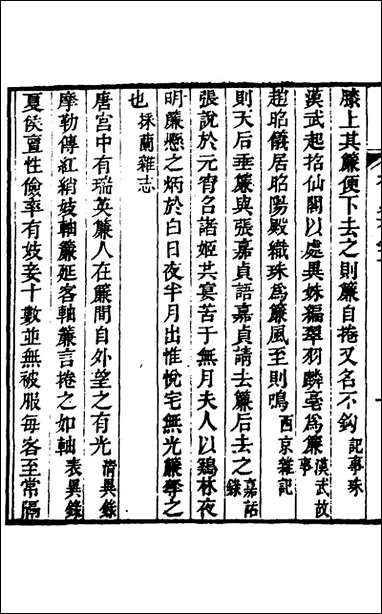 膝上其簾便下去之則簾自捲又名不鈎記事珠
漢武起招仙閣以處異姝編翠羽麟毫爲簾漢武故事
趙昭儀居昭陽殿織珠爲簾風至則鳴西京雜記
則天后垂簾與張嘉貞語嘉貞請去簾后去之嘉話錄
張說於元宵召諸姬共宴苦于無月夫人以鷄林夜
明簾懸之炳於白日夜半月出惟悅宅無光簾奪之
也採蘭雜志
唐宮中有瑞英簾人在簾間自外望之有光清異錄
摩勒傳紅綃妓軸簾延客軸簾言捲之如軸表異錄
夏侯亶性儉率有妓妾十數並無被服每客至常隔